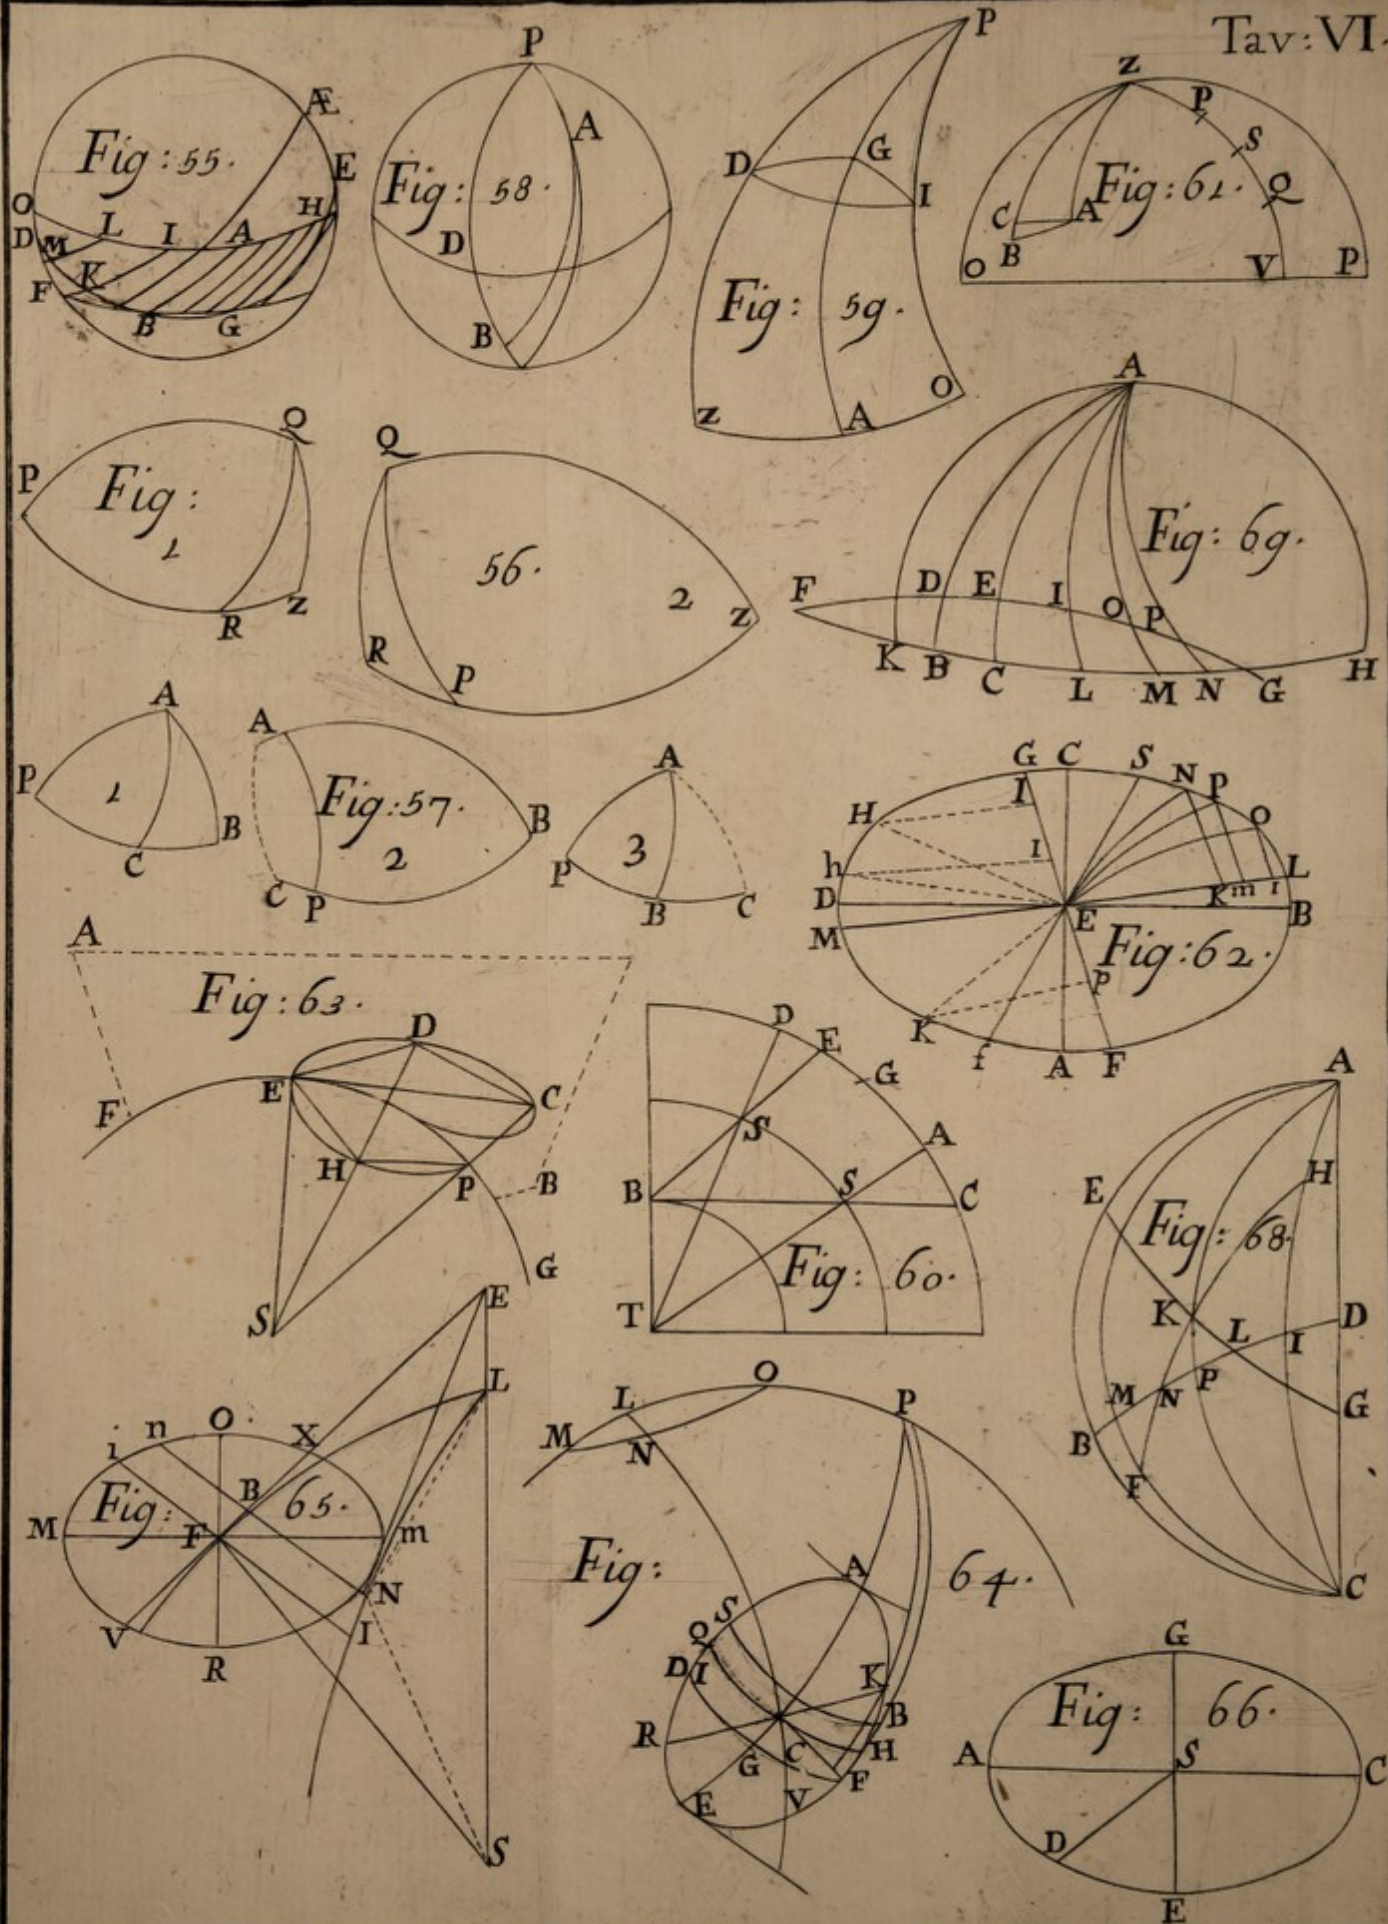 Tav: VI.
Fig: 55.
Æ
E
O
D
M
L
I
A
H
K
F
B
G
P
A
Fig: 58.
D
B
P
D
G
I
Fig: 59.
Z
A
O
Z
P
S
Q
Fig: 61.
C
A
B
O
V
P
P
Q
Fig:
1
R
Z
Q
56.
2
Z
R
P
A
Fig: 69.
F
D
E
I
O
P
K
B
C
L
M
N
G
H
A
P
1
B
C
A
Fig: 57.
2
B
C
P
A
3
P
B
C
G
C
S
N
P
O
H
I
h
I
D
M
E
L
K
m
I
B
Fig: 62.
p
K
f
A
F
A
Fig: 63.
D
E
C
F
H
P
B
G
S
D
E
G
S
A
B
S
C
Fig: 60.
T
A
E
H
Fig: 68.
K
L
I
D
M
N
P
G
B
F
C
E
L
i
n
O
X
Fig: 65.
B
M
F
m
N
V
I
R
S
L
O
P
M
N
Fig: 64.
A
S
Q
D
I
K
R
B
G
C
H
F
E
V
G
Fig: 66.
A
S
C
D
E